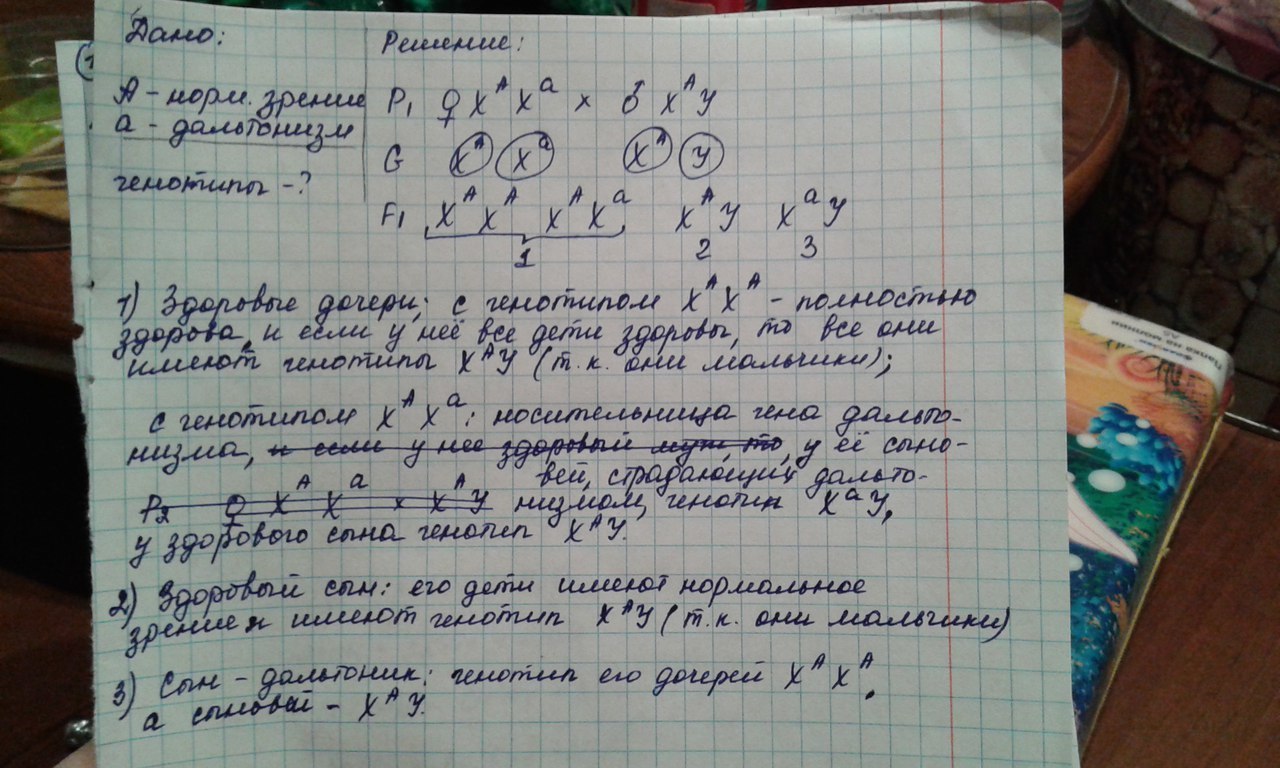 Дано:
Решение:
А - норм. зрение
а - дальтонизм
генотипы - ?
P₁ ♀ Xᴬ Xᵃ × ♂ XᴬУ
G Xᴬ Xᵃ Xᴬ У
F₁ Xᴬ Xᴬ Xᴬ Xᵃ XᴬУ XᵃУ
1 2 3
1) Здоровые дочери; с генотипом Xᴬ Xᴬ - полностью
здорова, и если у неё все дети здоровы, то все они
имеют генотипы XᴬУ (т.к. они мальчики);
с генотипом Xᴬ Xᵃ: носительница гена дальто-
низма, и если у нее здоровый муж, то, у её сыно-
вей, страдающих дальто-
P₂ ♀ Xᴬ Xᵃ × XᴬУ низмом, генотип XᵃУ,
у здорового сына генотип XᴬУ.
2) Здоровый сын: его дети имеют нормальное
зрение и имеют генотип XᴬУ (т.к. они мальчики)
3) Сын - дальтоник: генотип его дочерей Xᴬ Xᴬ,
а сыновей - XᴬУ.